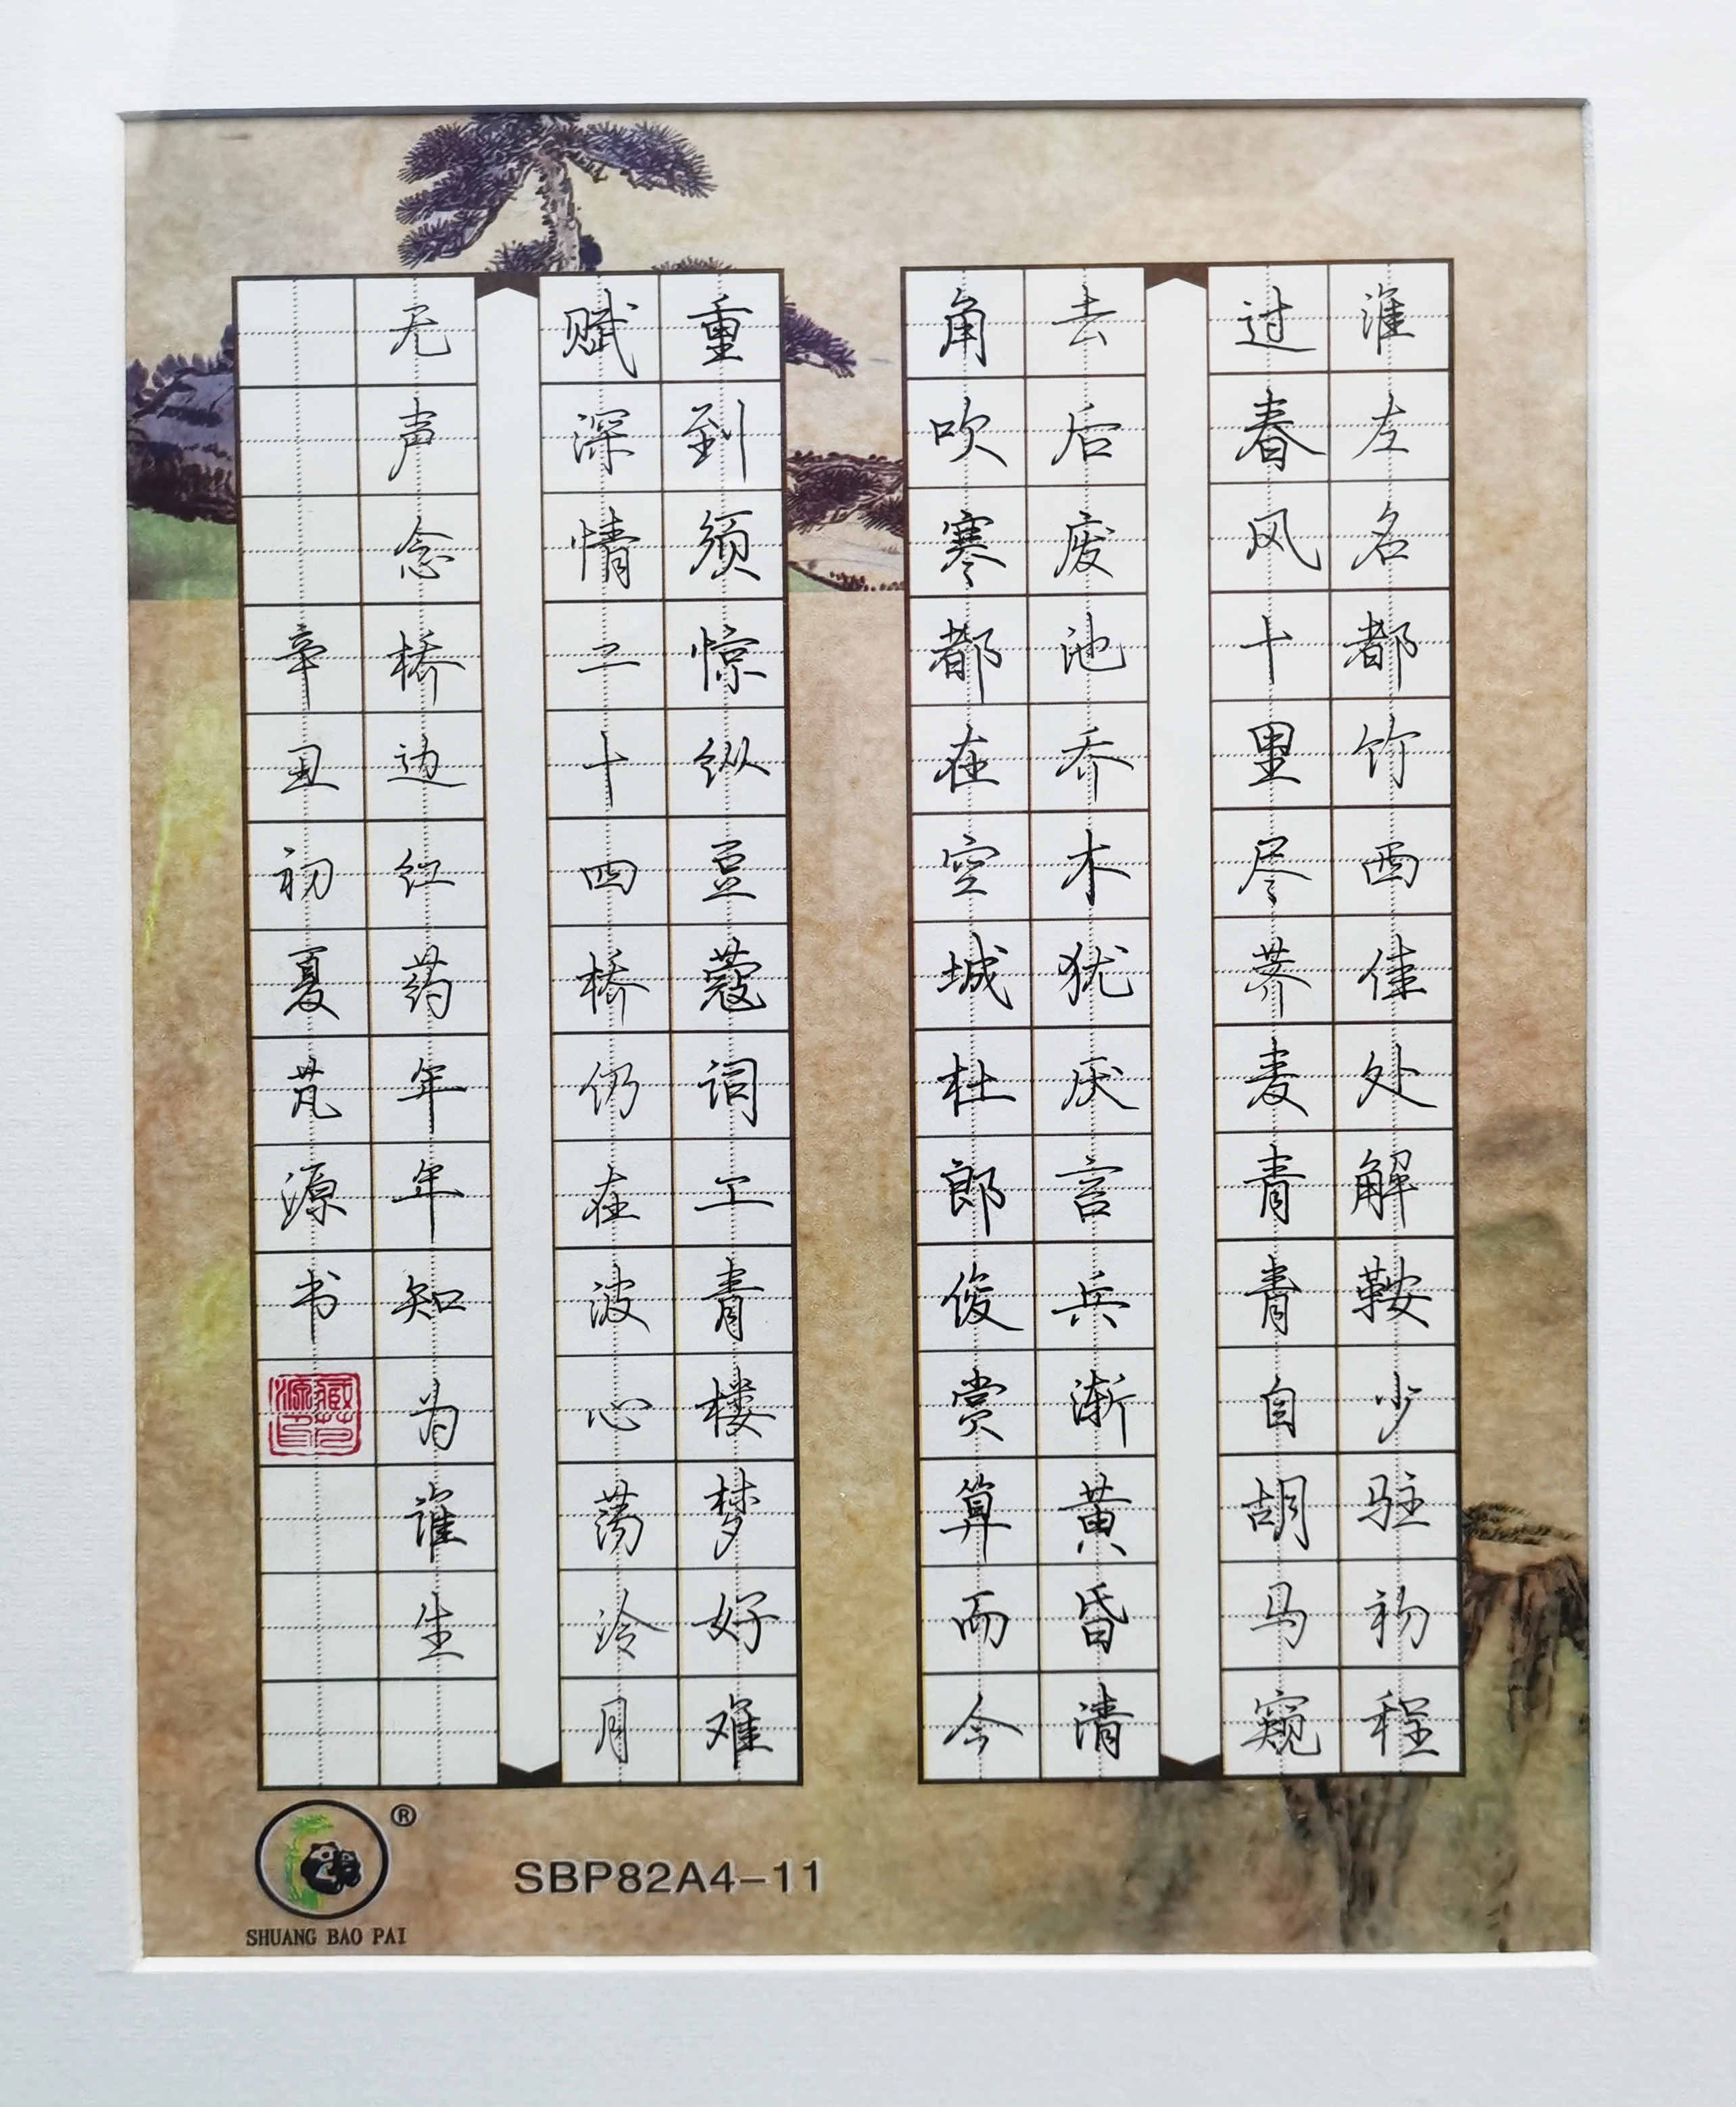 淮左名都竹西佳处解鞍少驻初程
过春风十里尽荠麦青青自胡马窥
去后废池乔木犹厌言兵渐黄昏清
角吹寒都在空城杜郎俊赏算而今
重到须惊纵豆蔻词工青楼梦好难
赋深情二十四桥仍在波心荡冷月
无声念桥边红药年年知为谁生
辛丑初夏芃源书
®
SHUANG BAO PAI
SBP82A4-11